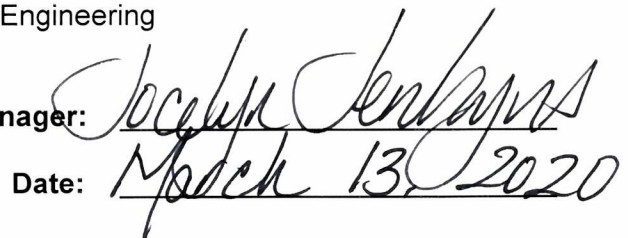 Engineering
nager: Jocelyn Jenkyns
Date: March 13, 2020